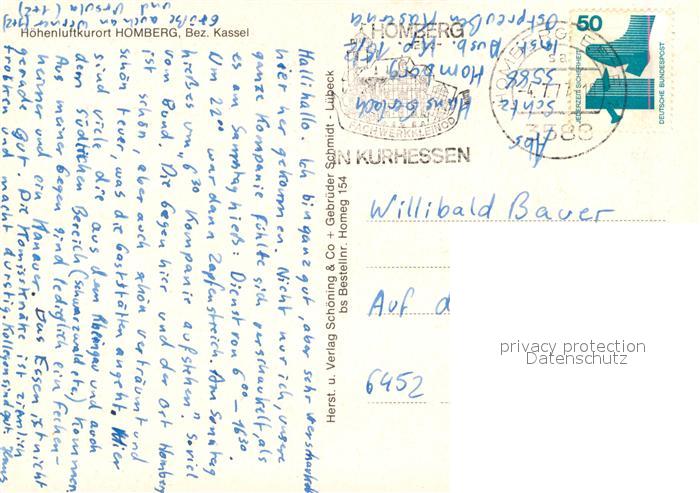 Höhenluftkurort HOMBERG, Bez. Kassel
Hallihallo. Ich bin ganz gut, aber sehr verschaukelt
hier her gekommen. Nicht nur ich, unsere
ganze Kompanie fühlte sich verschaukelt als
es am Samstag hieß: Dienst von 6⁰⁰ - 16³⁰.
Um 22⁰⁰ war dann Zapfenstreich. Am Sonntag
hieß es um "6³⁰ Kompanie aufstehen". Soviel
vom Bund. Die Gegen hier und der Ort Homberg
ist schön, aber auch schön verträumt und
schön teuer, was die Gaststätten angeht. Hier
sind viele die aus dem Rheingau und auch
dem südlichen Bereich (Schwarzwald etc) kommen
Aus meiner Gegen sind lediglich ein Fechen-
heimer und ein Hanauer. Das Essen ist nicht
gerade gut. Die Komissnähe ist ziemlich
trocken und macht durstig. Kollegen sind gut. Hans
Grüße auch an
und
Ursula (++2)
Herst. u. Verlag Schöning & Co + Gebrüder Schmidt - Lübeck
bs Bestellnr. Homeg 154
Abs.
Schtz Hans
3588 Homberg
Inst. Ausb. Kp. 16/2
Ostpreußen Kaserne
HOMBERG
FACHWERKKLEINOD
IN KURHESSEN
HOMBERG
sa
3588
50
JEDERZEIT SICHERHEIT
DEUTSCHE BUNDESPOST
Willibald Bauer
Auf d
6452
privacy protection
Datenschutz